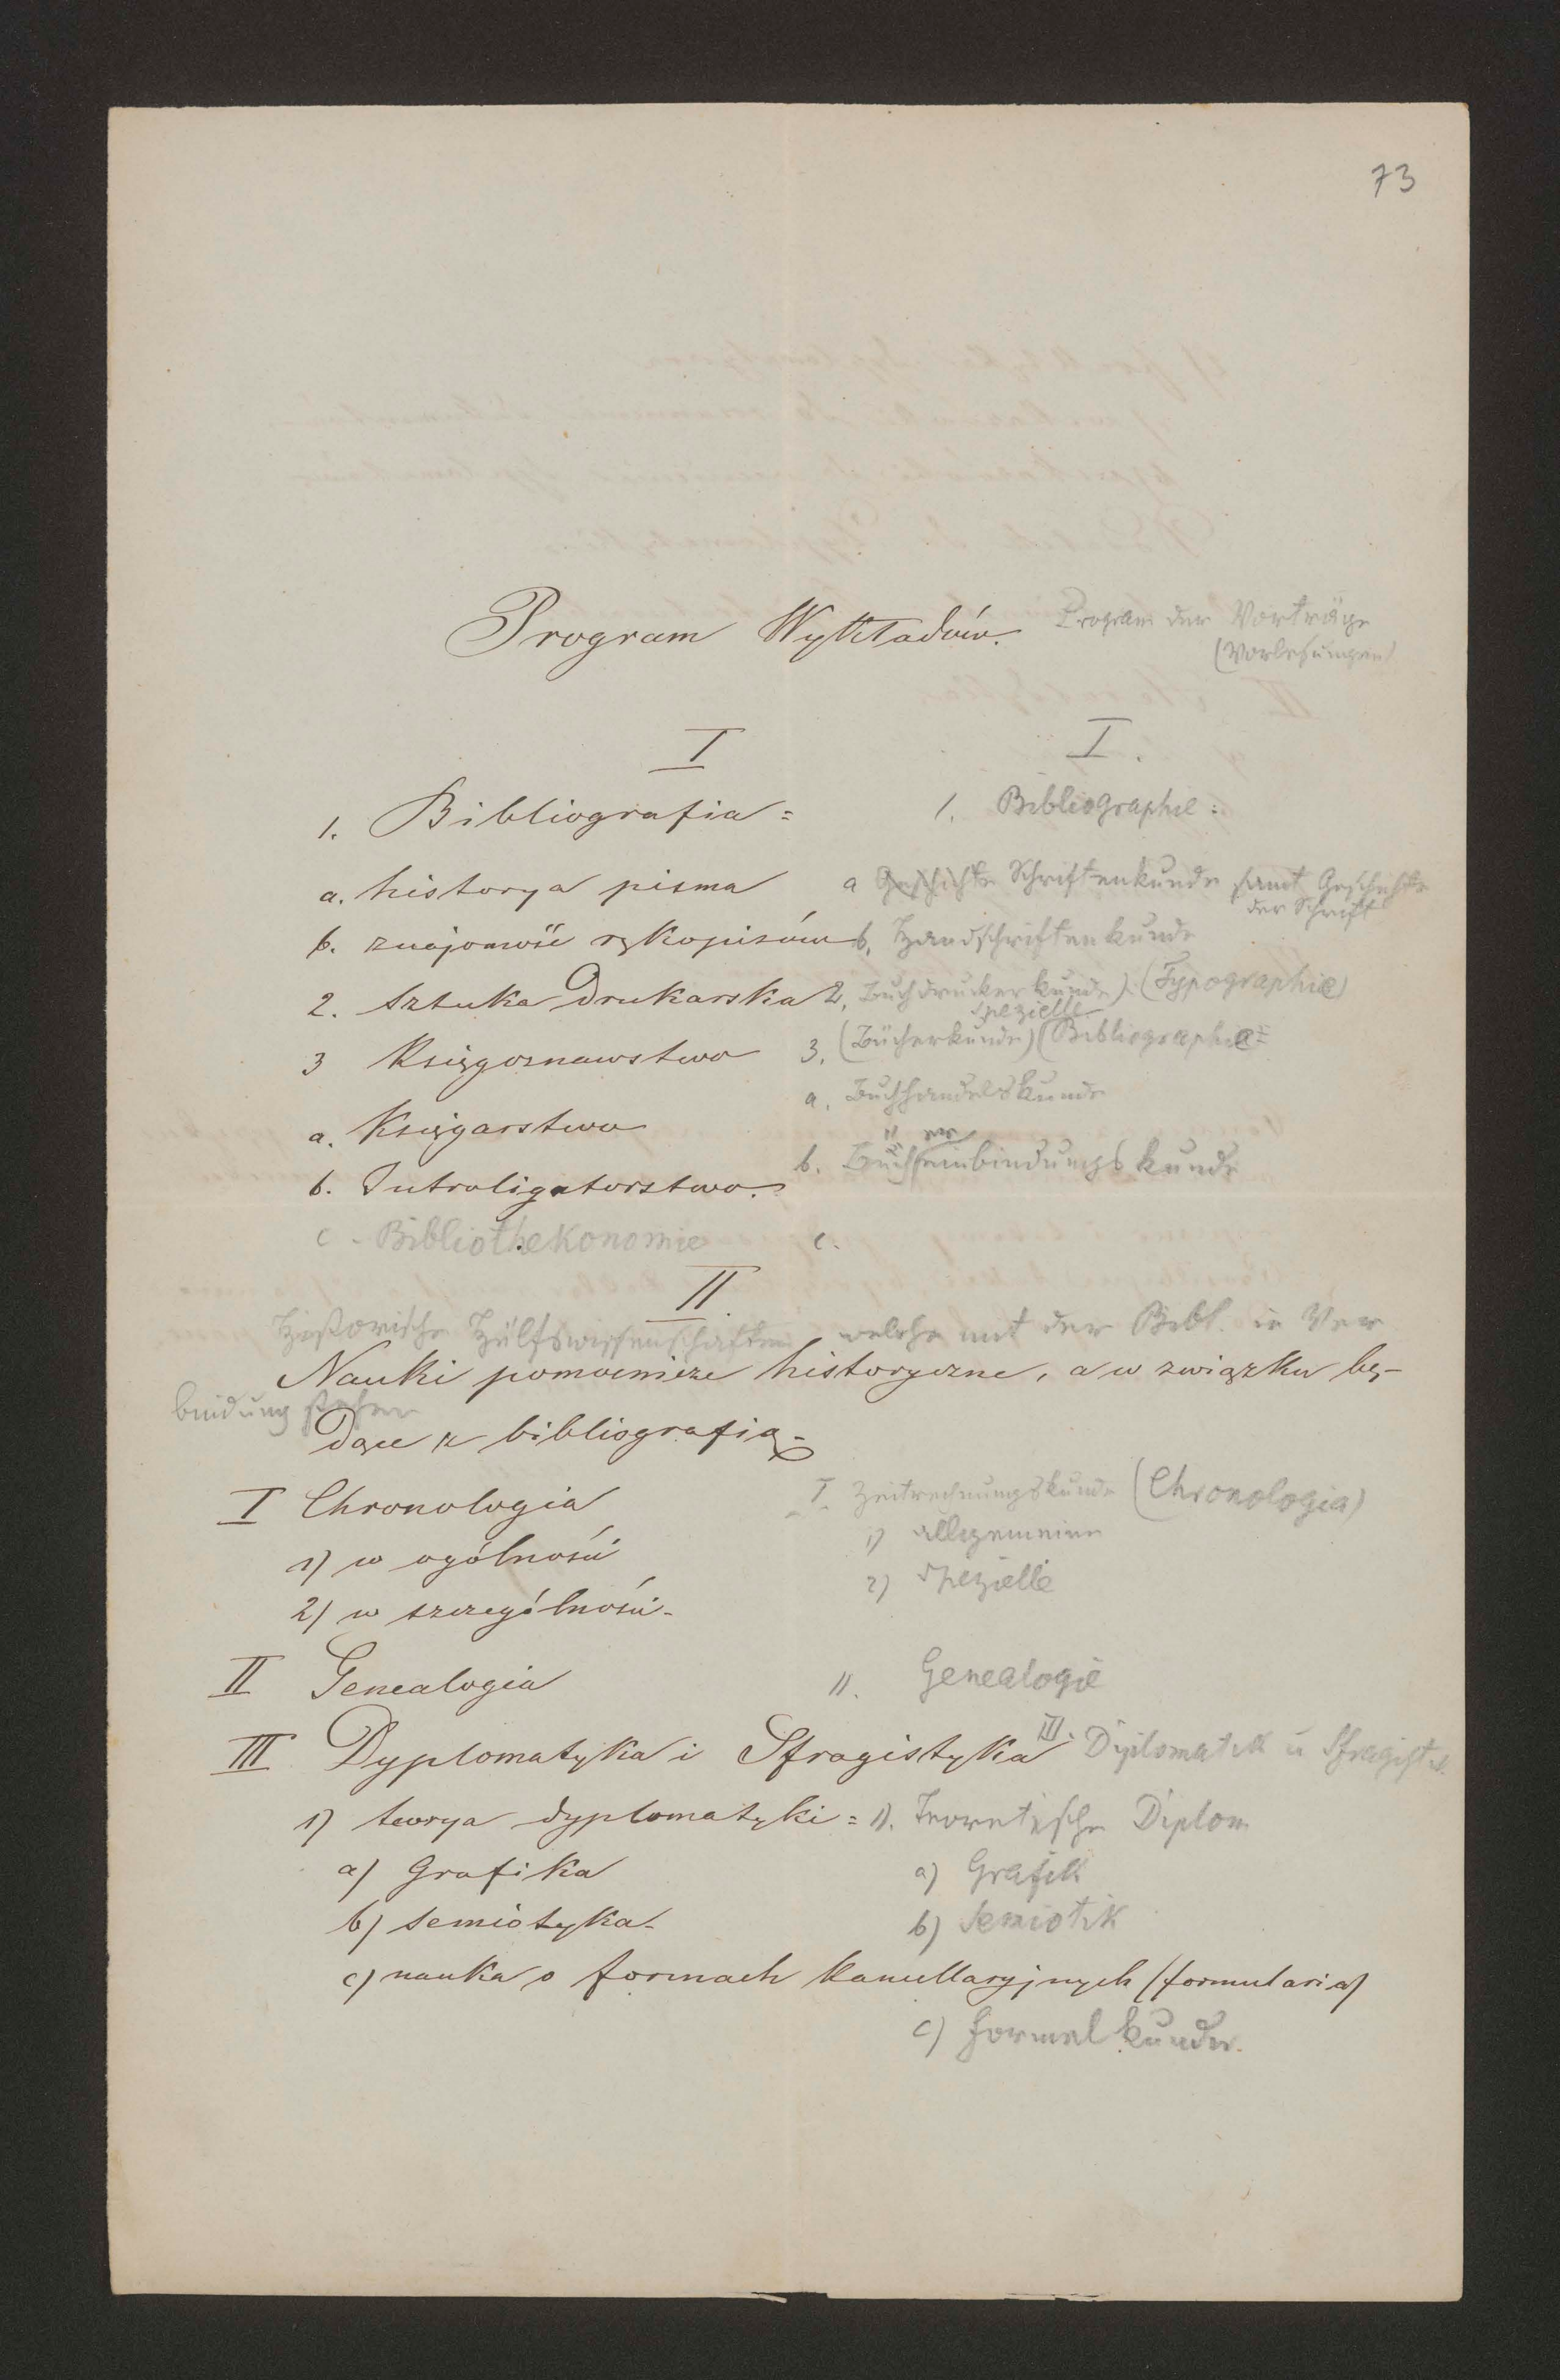 73
Program Wykładów. Program der Vorträge
(Vorlesungen)
I I.
1. Bibliografia = 1. Bibliographie:
a. historya pisma a Geschichte Schriftenkunde samt Geschichte
der Schrift
b. znajomość rękopisów b. Handschriftenkunde
2. Sztuka Drukarska 2. Buchdruckerkunde) (Typographie)
spezielle
3 Księgoznawstwo 3. (Bücherkunde) (Bibliographie=
a. Księgarstwo a. Buchhandelskunde
b. Introligatorstwo. b. Bucheinbindungskunde
c - Bibliothekonomie c.
II.
Historische Hülfswissenschaften welche mit der Bibl. in Ver
Nauki pomocnicze historyczne, a w związku bę-
bindung stehen
dące z bibliografią.
I Chronologia I. Zeitrechnungskunde (Chronologia)
1) w ogólności 1) allgemeine
2) w szczególności - 2) spezielle
II Genealogia II. Genealogie
III Dyplomatyka i Sfragistyka III. Diplomatik u Sfragistik
1) teorya dyplomatyki = 1). Teoretische Diplom
a) Grafika a) Grafik
b) semiotyka - b) Semiotik
c) nauka o formach kancellaryjnych (formularia)
c) Formelkunde.